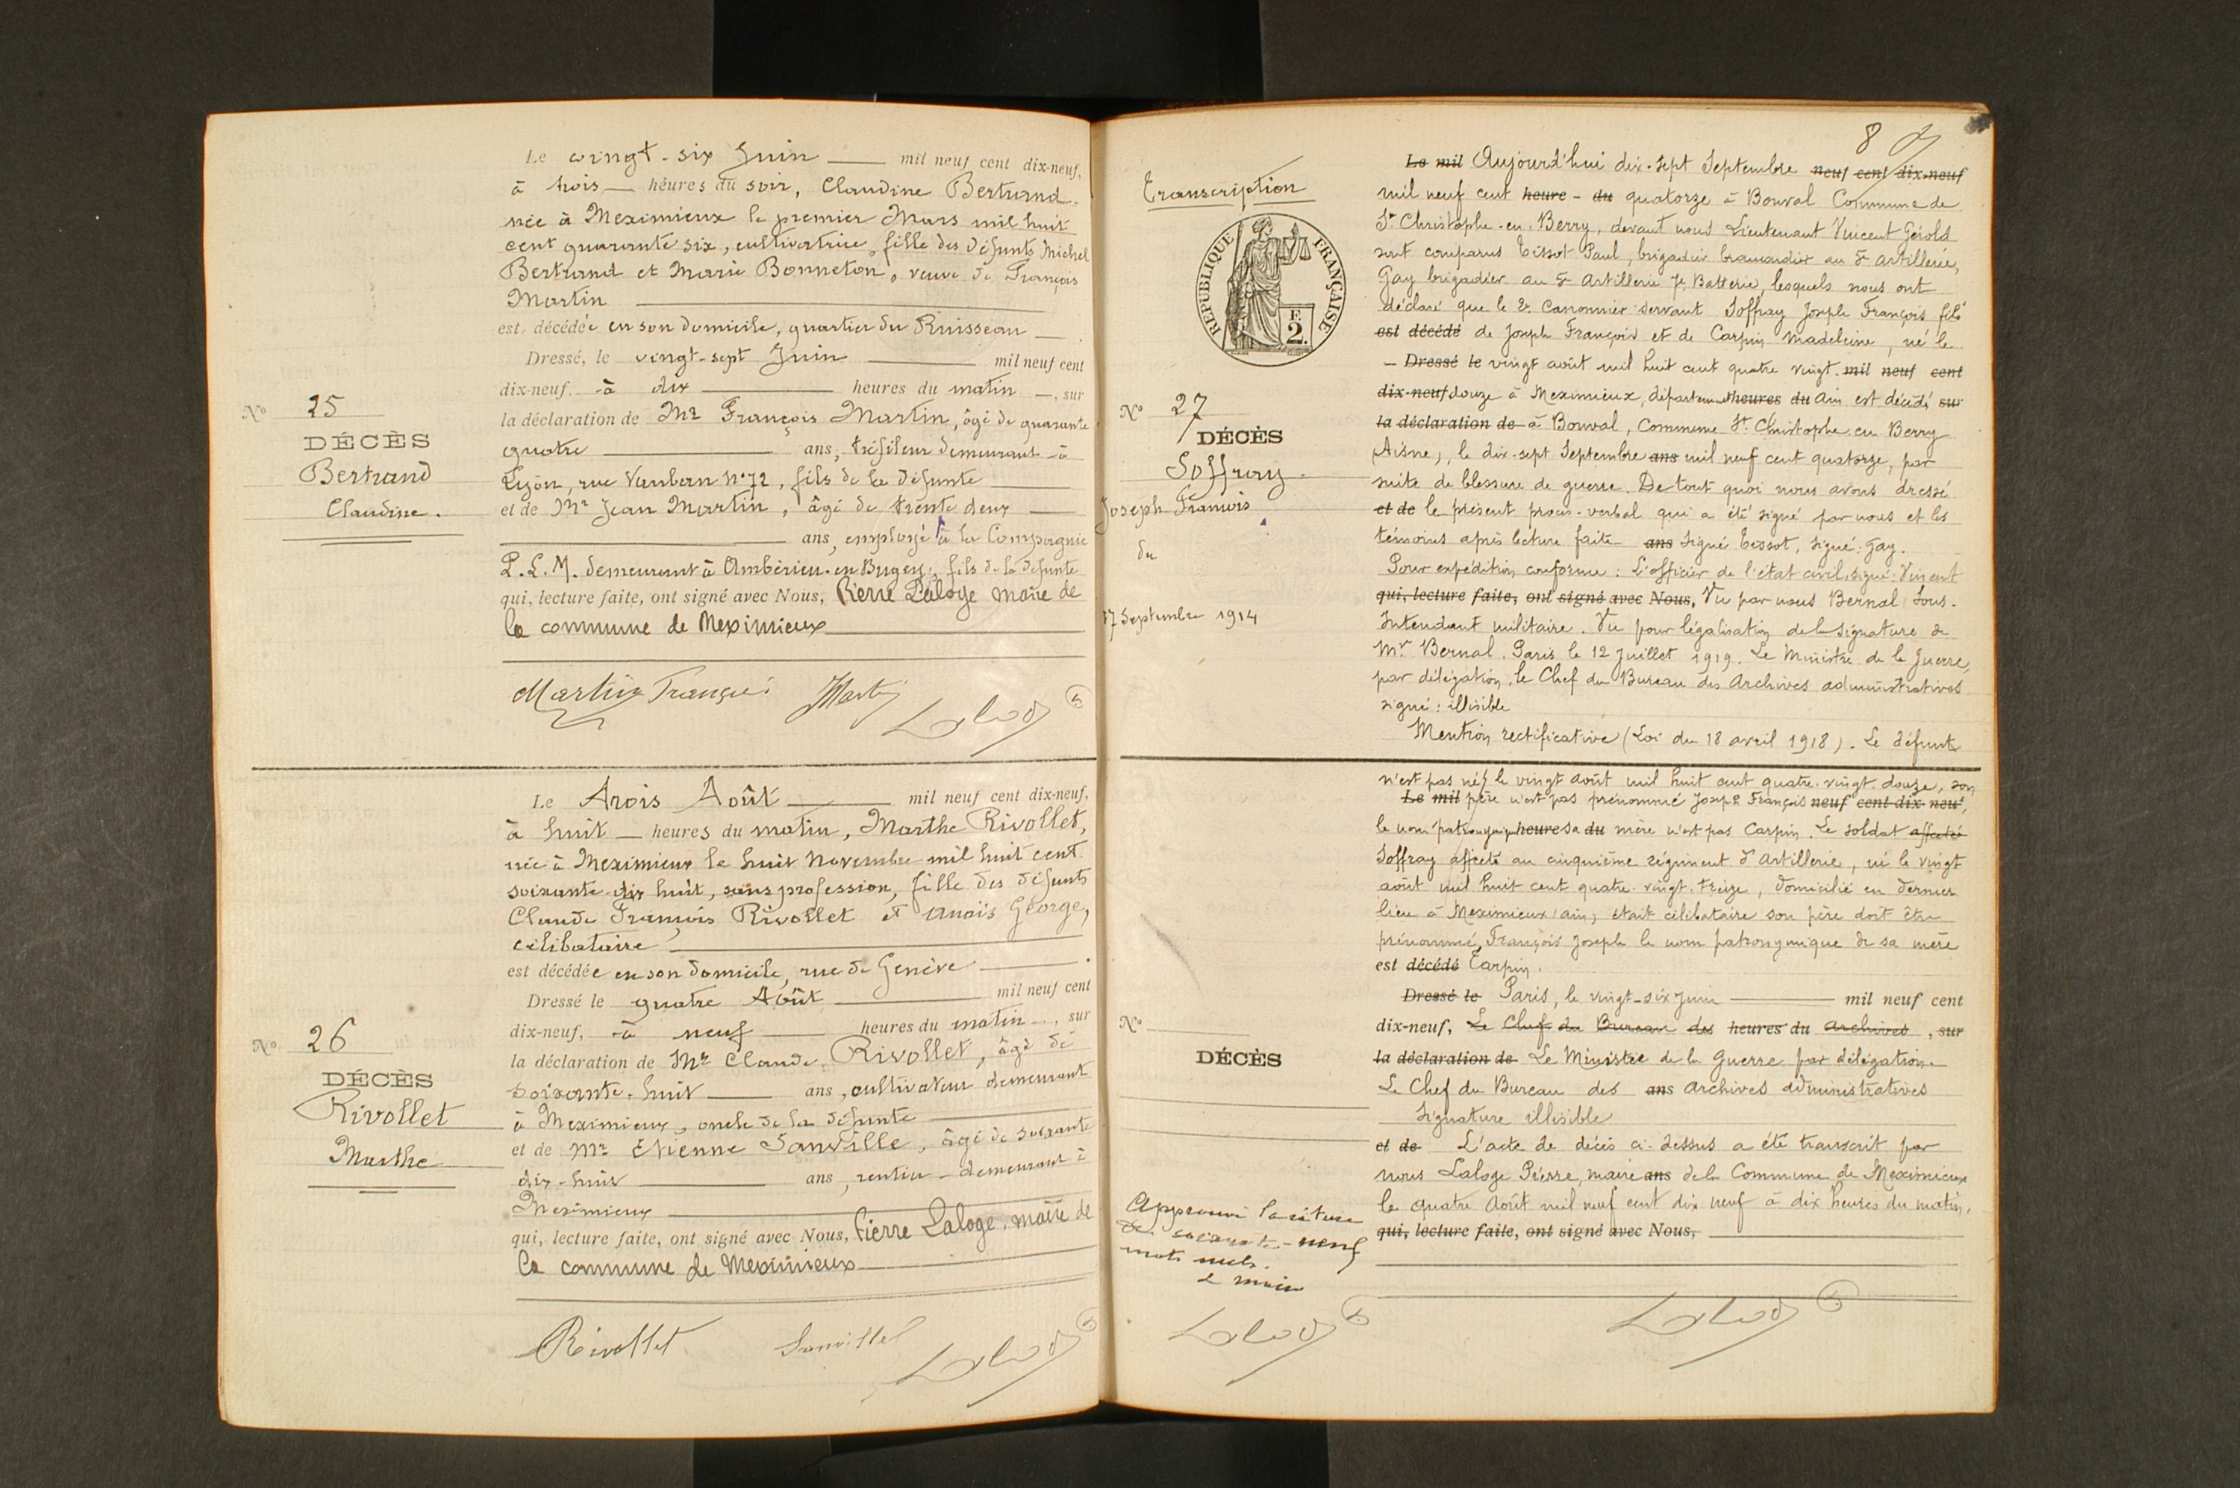 Le vingt-six Juin mil neuf cent dix-neuf,
à trois heures du soir, Claudine Bertrand
née à Meximieux le premier Mars mil huit
cent quarante six, cultivatrice, fille des défunts Michel
Bertrand et Marie Bonneton, veuve de François
Martin
est décédée en son domicile, quartier du Ruisseau
Dressé, le vingt-sept Juin mil neuf cent
dix-neuf à dix heures du matin, sur
la déclaration de Mr François Martin, âgé de quarante
quatre ans, tréfileur demeurant à
Lyon, rue Vauban n°72, fils de la défunte
et de Mr Jean Martin, âgé de trente deux
ans, employé à la Compagnie
P.L.M. demeurant à Ambérieu-en-Bugey, fils de la défunte
qui, lecture faite, ont signé avec Nous, Pierre Laloge maire de
la commune de Meximieux
Martin François JMartin Laloge
No 25
DÉCÈS
Bertrand
Claudine.
Le trois Août mil neuf cent dix-neuf,
à huit heures du matin, Marthe Rivollet,
née à Meximieux le huit Novembre mil huit cent
soixante dix huit, sans profession, fille des défunts
Claude François Rivollet et Anaïs George,
célibataire
est décédée en son domicile, rue de Genève.
Dressé le quatre Août mil neuf cent
dix-neuf, à neuf heures du matin, sur
la déclaration de Mr Claude Rivollet, âgé de
soixante-huit ans, cultivateur demeurant
à Meximieux, oncle de la défunte
et de Mr Etienne Sanville, âgé de soixante
dix-huit ans, rentier demeurant à
Meximieux
qui, lecture faite, ont signé avec Nous, Pierre Laloge, maire de
la commune de Meximieux
Rivollet Sanville Laloge
No 26
DÉCÈS
Rivollet
Marthe
8
Transcription
RÉPUBLIQUE FRANÇAISE
E
2.
No 27
DÉCÈS
Soffray
Joseph François
du
17 Septembre 1914
Le mil Aujourd'hui dix-sept Septembre neuf cent dix-neuf
mil neuf cent heure - du quatorze à Bouval Commune de
St Christophe-en-Berry, devant nous Lieutenant Vincent Gérold
sont comparus Tissot Paul, brigadier brancardier au 5e artillerie,
Gay brigadier au 5e Artillerie 7e Batterie, lesquels nous ont
déclaré que le 2e Canonnier servant Soffray Joseph François fils
est décédé de Joseph François et de Carpin Madeleine, né le
- Dressé le vingt août mil huit cent quatre vingt. mil neuf cent
dix-neuf douze à Meximieux, département heures du Ain est décédé sur
la déclaration de à Bouval, Commune St Christophe en Berry
(Aisne), le dix-sept Septembre ans mil neuf cent quatorze, par
suite de blessure de guerre. De tout quoi nous avons dressé
et de le présent procès-verbal qui a été signé par nous et les
témoins après lecture faite ans signé Tissot, signé: Gay.
Pour expédition conforme: L'officier de l'état civil, signé: Vincent
qui, lecture faite, ont signé avec Nous, Vu par nous Bernal Sous-
Intendant militaire. Vu pour légalisation de la signature de
Mr Bernal. Paris le 12 Juillet 1919. Le Ministre de la Guerre,
par délégation, le Chef du Bureau des Archives administratives
signé: illisible
Mention rectificative (Loi du 18 avril 1918). Le défunt
n'est pas né le vingt août mil huit cent quatre-vingt-douze, son
Le mil père n'est pas prénommé Joseph François neuf cent dix-neuf,
le nom patronymique heures du sa mère n'est pas Carpin. Le soldat affecté
Soffray affecté au cinquième régiment d'artillerie, né le vingt
août mil huit cent quatre-vingt-treize, domicilié en dernier
lieu à Meximieux (Ain), était célibataire son père doit être
prénommé, François Joseph le nom patronymique de sa mère
est décédé Tarpin.
Dressé le Paris, le vingt-six Juin mil neuf cent
dix-neuf, Le Chef du Bureau des heures du archives, sur
la déclaration de Le Ministre de la Guerre par délégation
Le Chef du Bureau des ans archives administratives
Signature illisible
et de L'acte de décès ci-dessus a été transcrit par
nous Laloge Pierre, maire ans de la Commune de Meximieux
le quatre Août mil neuf cent dix neuf à dix heures du matin.
qui, lecture faite, ont signé avec Nous,
Laloge
No
DÉCÈS
Approuvé la rature
de soixante-neuf
mots nuls.
Le maire
Laloge